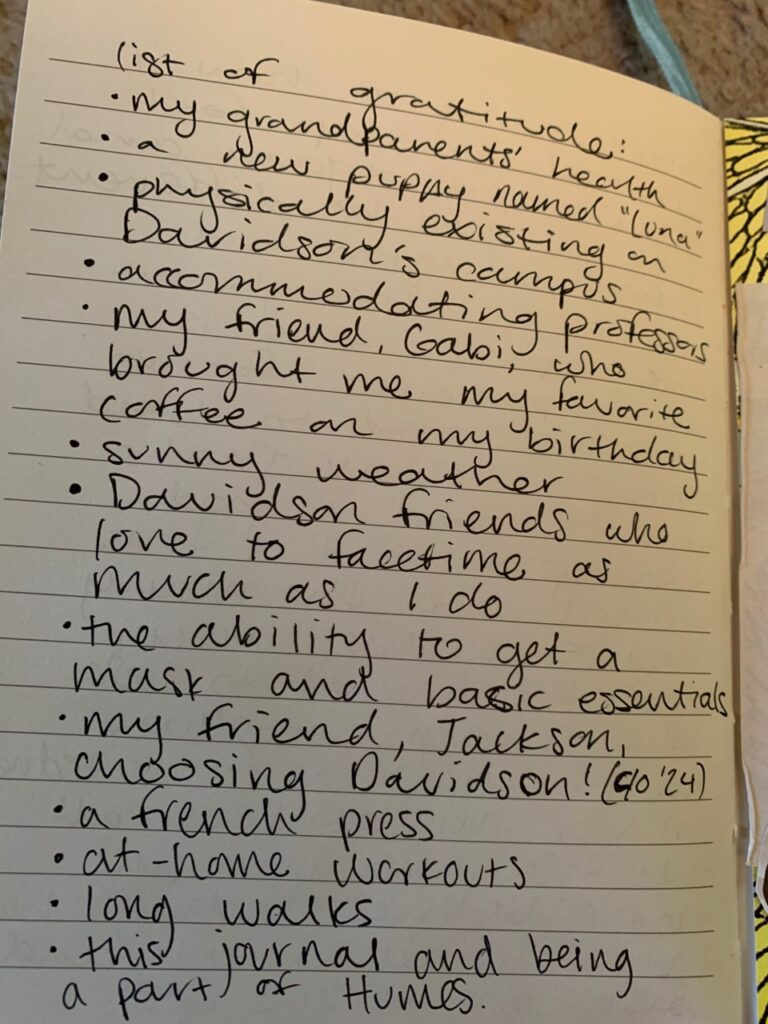 list of gratitude:
• my grandparents' health
• a new puppy named "Luna"
• physically existing on
Davidson's campus
• accommodating professors
• my friend, Gabi, who
brought me my favorite
coffee on my birthday
• sunny weather
• Davidson friends who
love to facetime as
much as I do
• the ability to get a
mask and basic essentials
• my friend, Jackson,
choosing Davidson! (go '24)
• a french press
• at-home workouts
• long walks
• this journal and being
a part of Humes.